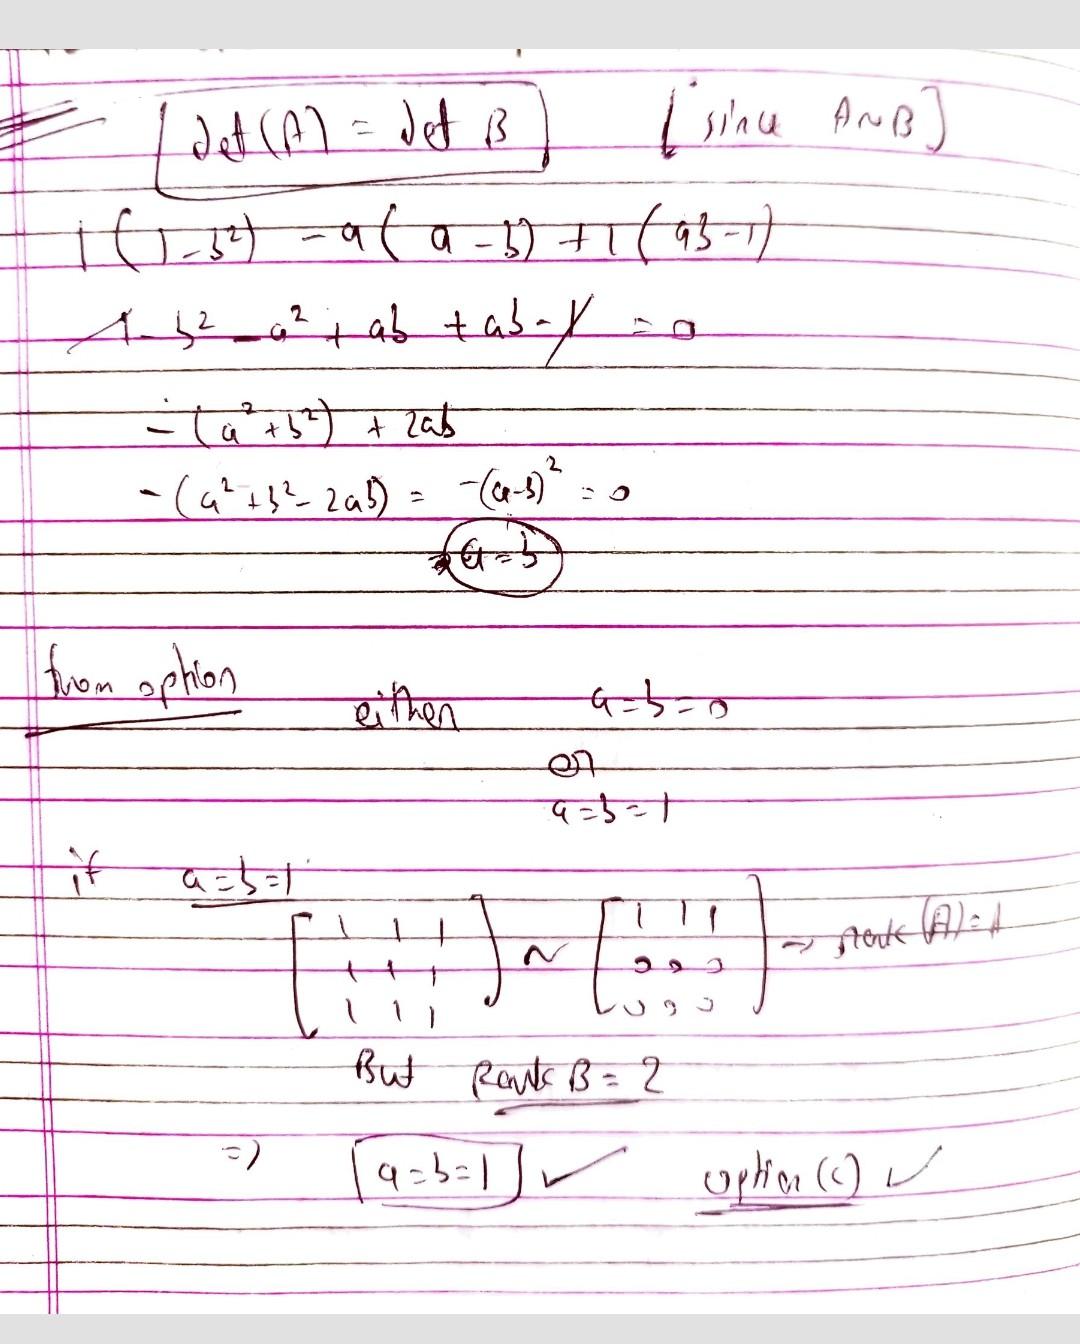 det(A) = det B [since A~B]
1(1-b²) - a(a-b) + 1(ab-1)
1-b² - a² + ab + ab - 1 = 0
-(a²+b²) + 2ab
-(a²+b²-2ab) = -(a-b)² = 0
⇒ a=b
from option either a=b=0
or
a=b=1
if a=b=1
[1 1 1 ~ [1 1 1
1 1 1 0 0 0 ⇒ rank (A)=1
1 1 1] 0 0 0]
But Rank B = 2
⇒ [a=b=1] ✓ option (c) ✓